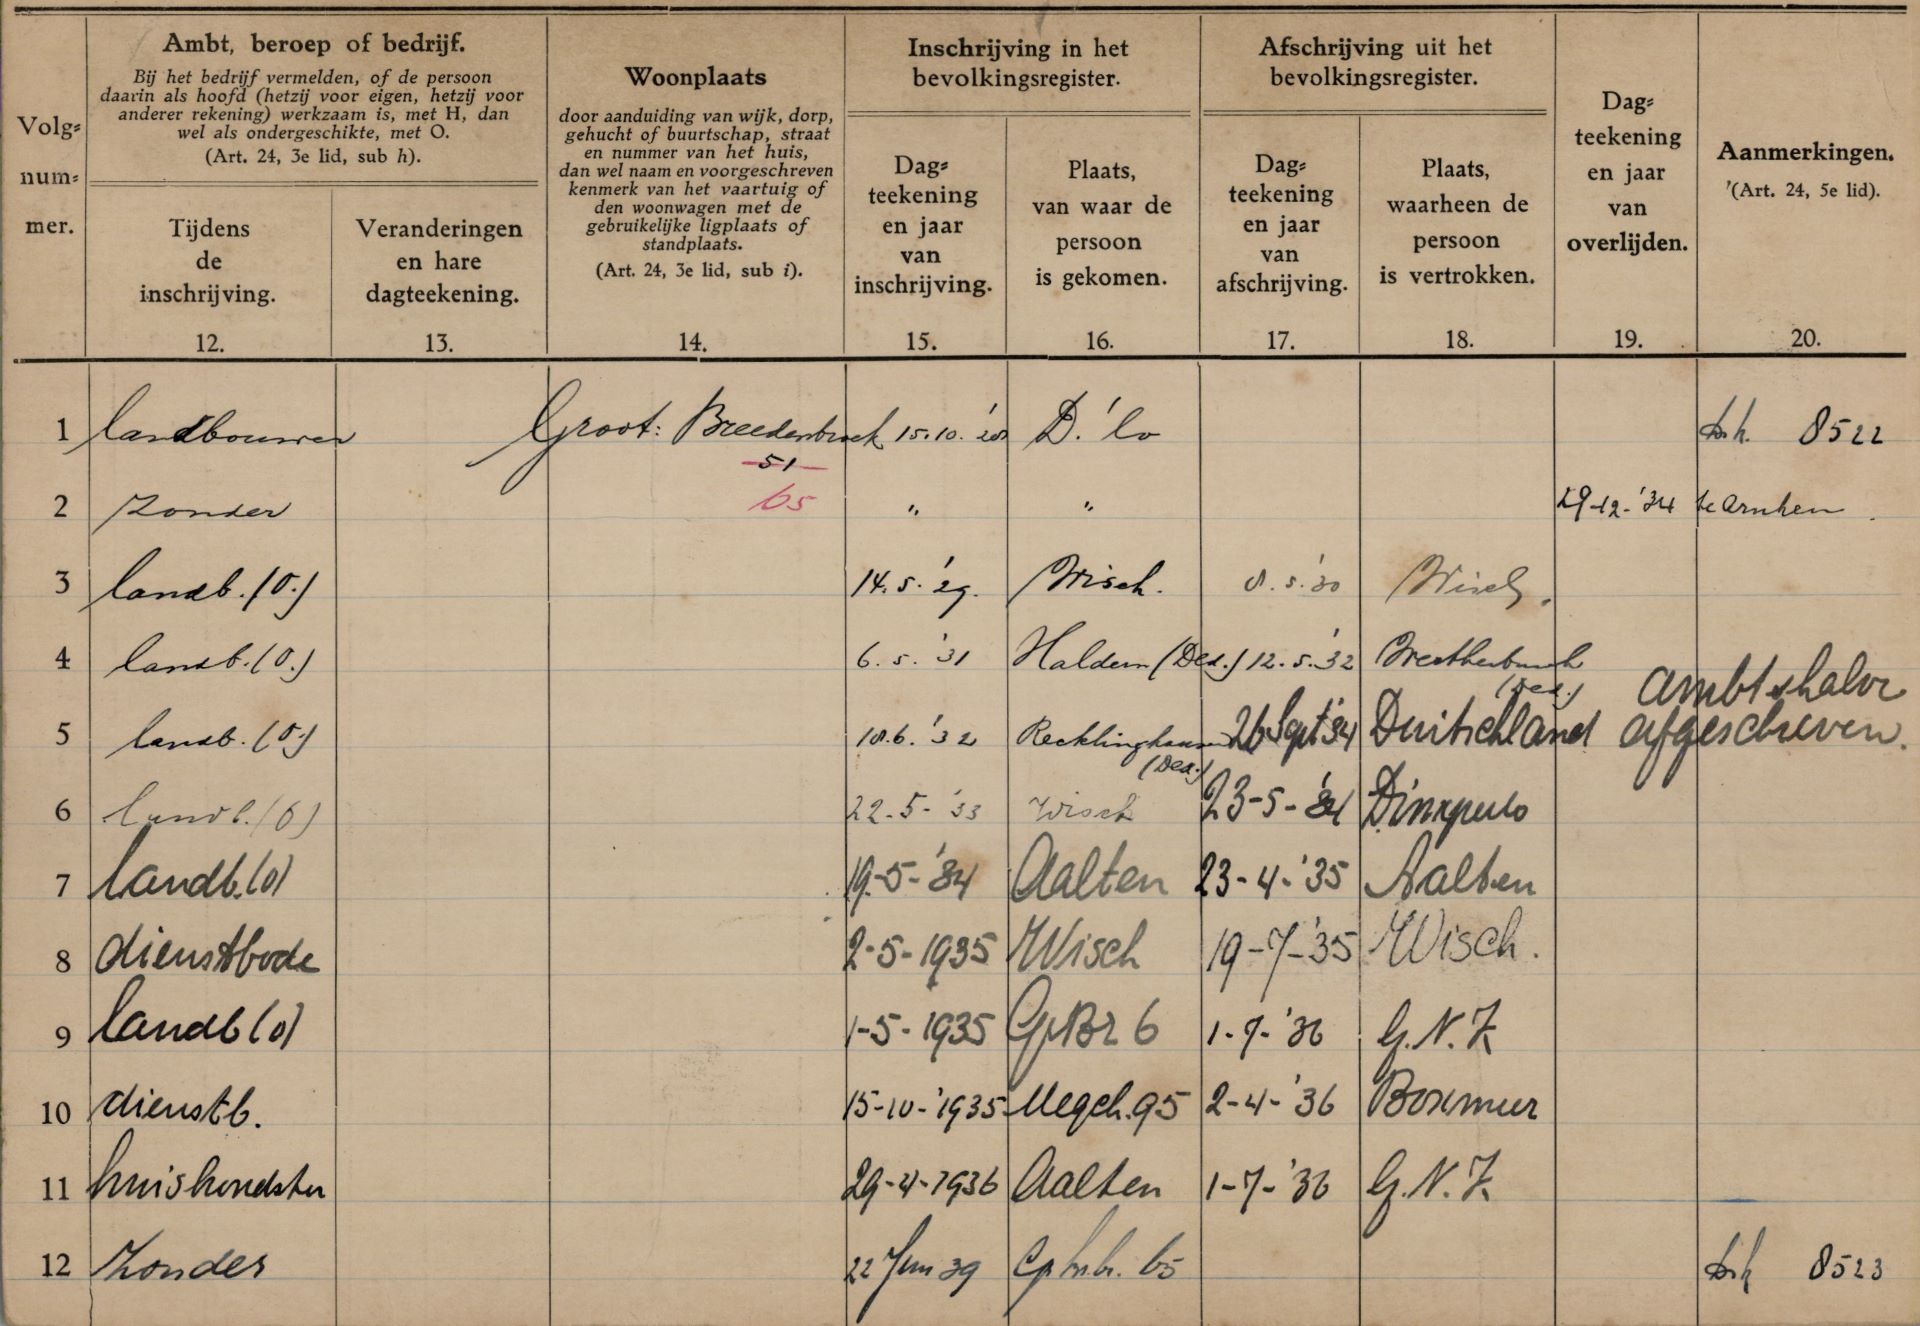 Volg-
num-
mer.
Ambt, beroep of bedrijf.
Bij het bedrijf vermelden, of de persoon
daarin als hoofd (hetzij voor eigen, hetzij voor
anderer rekening) werkzaam is, met H, dan
wel als ondergeschikte, met O.
(Art. 24, 3e lid, sub h).
Tijdens
de
inschrijving.
12.
Veranderingen
en hare
dagteekening.
13.
Woonplaats
door aanduiding van wijk, dorp,
gehucht of buurtschap, straat
en nummer van het huis,
dan wel naam en voorgeschreven
kenmerk van het vaartuig of
den woonwagen met de
gebruikelijke ligplaats of
standplaats.
(Art. 24, 3e lid, sub i).
14.
Inschrijving in het
bevolkingsregister.
Dag-
teekening
en jaar
van
inschrijving.
15.
Plaats,
van waar de
persoon
is gekomen.
16.
Afschrijving uit het
bevolkingsregister.
Dag-
teekening
en jaar
van
afschrijving.
17.
Plaats,
waarheen de
persoon
is vertrokken.
18.
Dag-
teekening
en jaar
van
overlijden.
19.
Aanmerkingen.
(Art. 24, 5e lid).
20.
1 landbouwer Groot: Breedenbroek 15.10.'20 D.'lo 8522
51
2 zonder 65 " " 29-12-'34 te Arnhem
3 landb. (O.) 14.5.'29. Wisch. 8.5.'30 Wisch.
4 landb. (O.) 6.5.'31 Haldern (Dld.) 12.5.'32
(Dld.) ambtshalve
5 landb. (O.) 18.6.'32 Recklinghausen 26 Sept '34 Duitschland afgeschreven.
(Dld.)
6 landb. (O) 22-5-'33 Wisch 23-5-'34 Dinxperlo
7 landb. (O) 19-5-'34 Aalten 23-4-'35 Aalten
8 dienstbode 2-5-1935 Wisch 19-7-'35 Wisch.
9 landb (O) 1-5-1935 Gr Br 6 1-7-'36 G.N.Z.
10 dienstb. 15-10-'1935 Megch. 95 2-4-'36 Boxmeer
11 huishoudster 29-4-1936 Aalten 1-7-'36 G.N.Z.
12 Zonder 22 Juni 39 65 8523